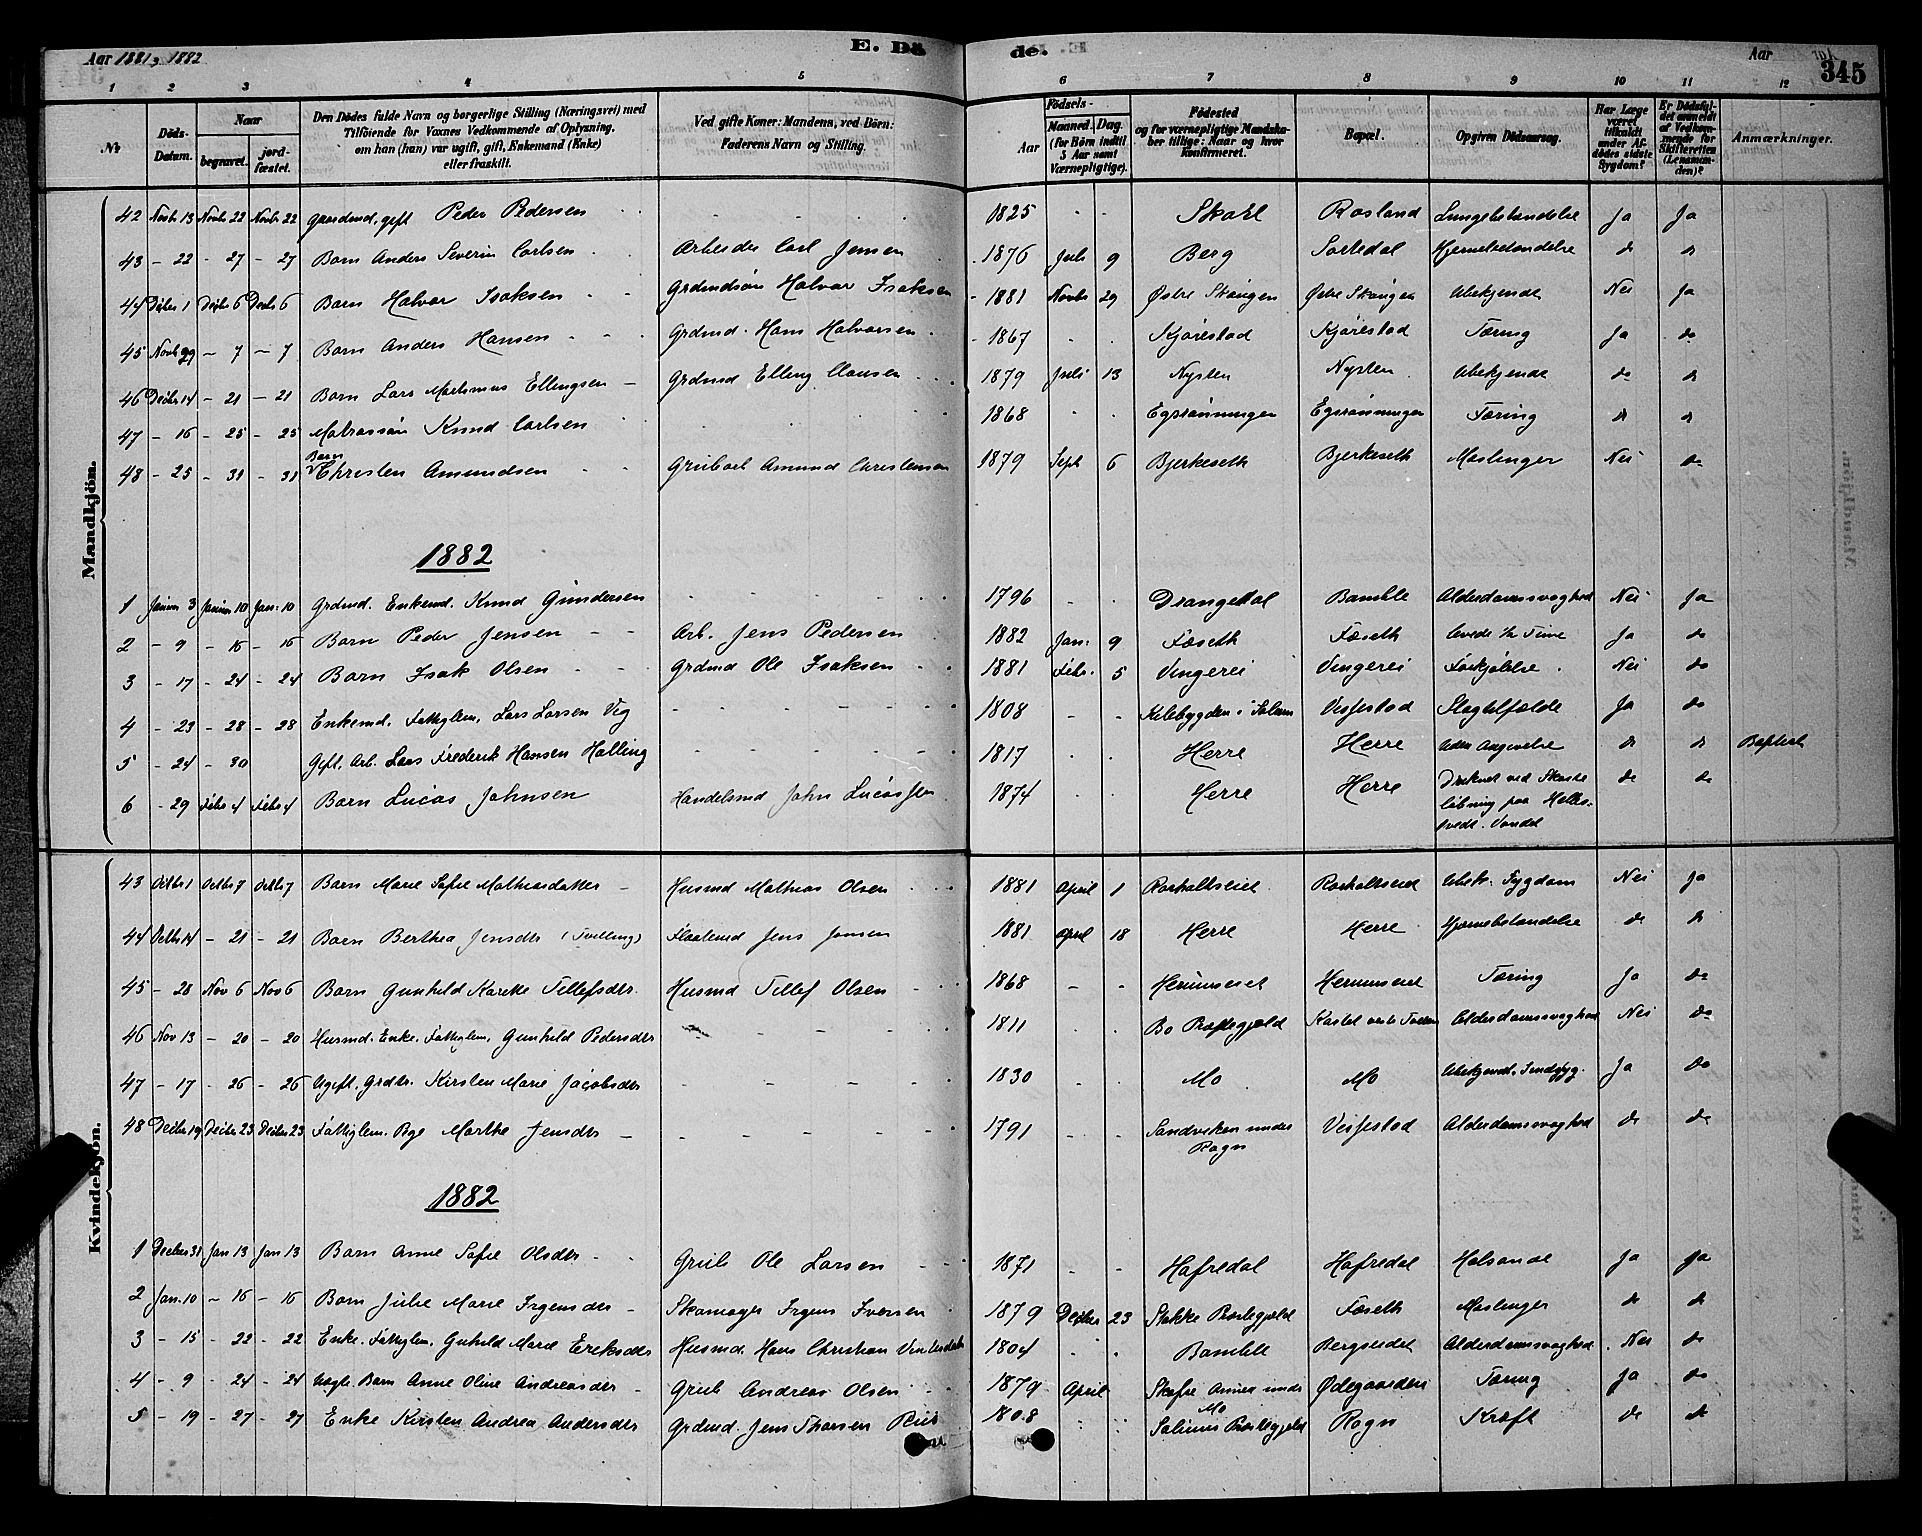 Aar 1881, 1882 E. Dö de. Aar 345
1 2 3 4 5 6 7 8 9 10 11 12
№ Döds-Datum. Naar begravet. jordfæstet. Den Dödes fulde Navn og borgerlige Stilling (Næringsvei) med Tilföiende for Voxnes Vedkommende af Oplysning, om han (hun) var ugift, gift, Enkemand (Enke) eller fraskilt. Ved gifte Koner: Mandens, ved Börn: Faderens Navn og Stilling. Födsels- Aar Maaned. Dag. (for Börn indtil 5 Aar samt Værnepligtige). Födested og for værnepligtige Mandskaber tillige: Naar og hvor konfirmeret. Bopæl. Opgiven Dödsaarsag. Har Læge været tilkaldt under Afdödes sidste Sygdom? Er Dödsfaldet anmeldt af Vedkommende for Skifteretten (Lensmanden)? Anmærkninger.
Mandkjön.
42 Novbr 13 Novbr 22 Novbr 22 Gaardmd, gift Peder Pedersen 1825 Rosland Lungebetændelse Ja Ja
43 - 22 - 27 - 27 Barn Anders Severin Carlsen Arbeider Carl Jensen 1876 Juli 9 Berg Sortedal Hjernebetændelse do do
44 Decbr 1 Decbr 6 Decbr 6 Barn Halvor Isaksen Grdmdsön Halvor Isaksen 1881 Novbr 29 Østre Skougen Østre Skougen Ubekjendt Nei Ja
45 Novbr 29 - 7 - 7 Barn Anders Hansen Grdmd. Hans Halvorsen 1867 Kjörestad Kjörestad Tæring Ja do
46 Decbr 14 - 21 - 21 Barn Lars Martinius Ellingsen Grdmd Elling Clausen 1879 Juli 13 Nysten Nysten Ubekjendt do do
47 - 16 - 25 - 25 Matrossön Knud Carlsen 1868 Egsrönningen Egsrönningen Tæring do do
48 - 25 - 31 - 31 Barn Christen Amundsen Grubearb Amund Christensen 1879 Sept 6 Bjerkeseth Bjerkeseth Mæslinger Nei do
1882
1 Januar 3 Januar 10 Jan. 10 Grdmd. Enkemd. Knud Gundersen 1796 Drangedal Bamble Alderdomssvaghed Nei Ja
2 - 9 - 16 - 16 Barn Peder Jensen Arb. Jens Pedersen 1882 Jan: 9 Fæseth Fæseth Levede ½ Time Ja do
3 - 17 - 24 - 24 Barn Isak Olsen Grdmd Ole Isaksen 1881 Febr. 5 Vingerei Vingerei Forkjölelse. Nei do
4 - 23 - 28 - 28 Enkemd. Fattiglem, Lars Larsen Vig 1808 Kilebygden i Solum Vissestad Slagtilfælde Ja do
5 - 24 - 30 Gift, Arb. Lars Frederik Hansen Halling 1817 Herre Herre Uden Angivelse do do Baptist
6 - 29 Febr 4 Febr 4 Barn Lucas Johnsen Handelsmd John Lucassen 1874 Herre Herre Druknet ved Skøiteløbning paa Vandet do do
Kvindekjön.
43 Octbr 1 Octbr 7 Octbr 7 Barn Marie Sofie Mathiasdatter Husmd Mathias Olsen 1881 April 1 Rorholtseiet Rorholtseiet Ubek. Sygdom Nei Ja
44 Octbr 14 - 21 - 21 Barn Berthea Jensdtr (Tvilling) Flaatemd Jens Jensen 1881 April 18 Herre Herre Hjernebetændelse do do
45 - 28 Nov 6 Nov 6 Barn Gunhild Karette Tellefsdtr. Husmd Tellef Olsen 1868 Herumseiet Herumseiet Tæring Ja do
46 Nov 13 - 20 - 20 Husmd. Enke. Fattiglem, Gunhild Pedersdtr 1811 Bø Præstegjæld Alderdomssvaghed Nei do
47 - 17 - 26 - 26 Ugift. Grdtr. Kirsten Marie Jacobsdtr 1830 Mo Mo Ubekjendt. Sindssyg. Ja do
48 Decbr 19 Decbr 23 Decbr 23 Fattiglem. Pige Marthe Jensdtr 1791 Sandviken under Rogn Vissestad Alderdomssvaghed do do
1882
1 Decbr 31 Jan 13 Jan 13 Barn Anne Sofie Olsdtr Grub Ole Larsen 1871 Hafredal Hafredal Halsonde Ja Ja
2 Jan. 10 - 16 - 16 Barn Julie Marie Irgensdtr Skomager Irgens Iversen 1879 Decbr 23 Stokke Præstegjæld Fæseth Mæslinger do do
3 - 15 - 22 - 22 Enke. Fattiglem, Gunhild Marie Eriksdtr Husmd. Hans Christian 1804 Bamble Bergseidet Alderdomssvaghed Nei do
4 - 9 - 24 - 24 Uægte Barn Anne Oline Andreasdtr Grub Andreas Olsen 1879 April Skafse Annex under Mo Ødegaarden Tæring Ja do
5 - 19 - 27 - 27 Enke Kirsten Andrea Andersdtr Grdmd. Jens Thorsen 1808 Solums Præstegjæld Rogn Kræft do do